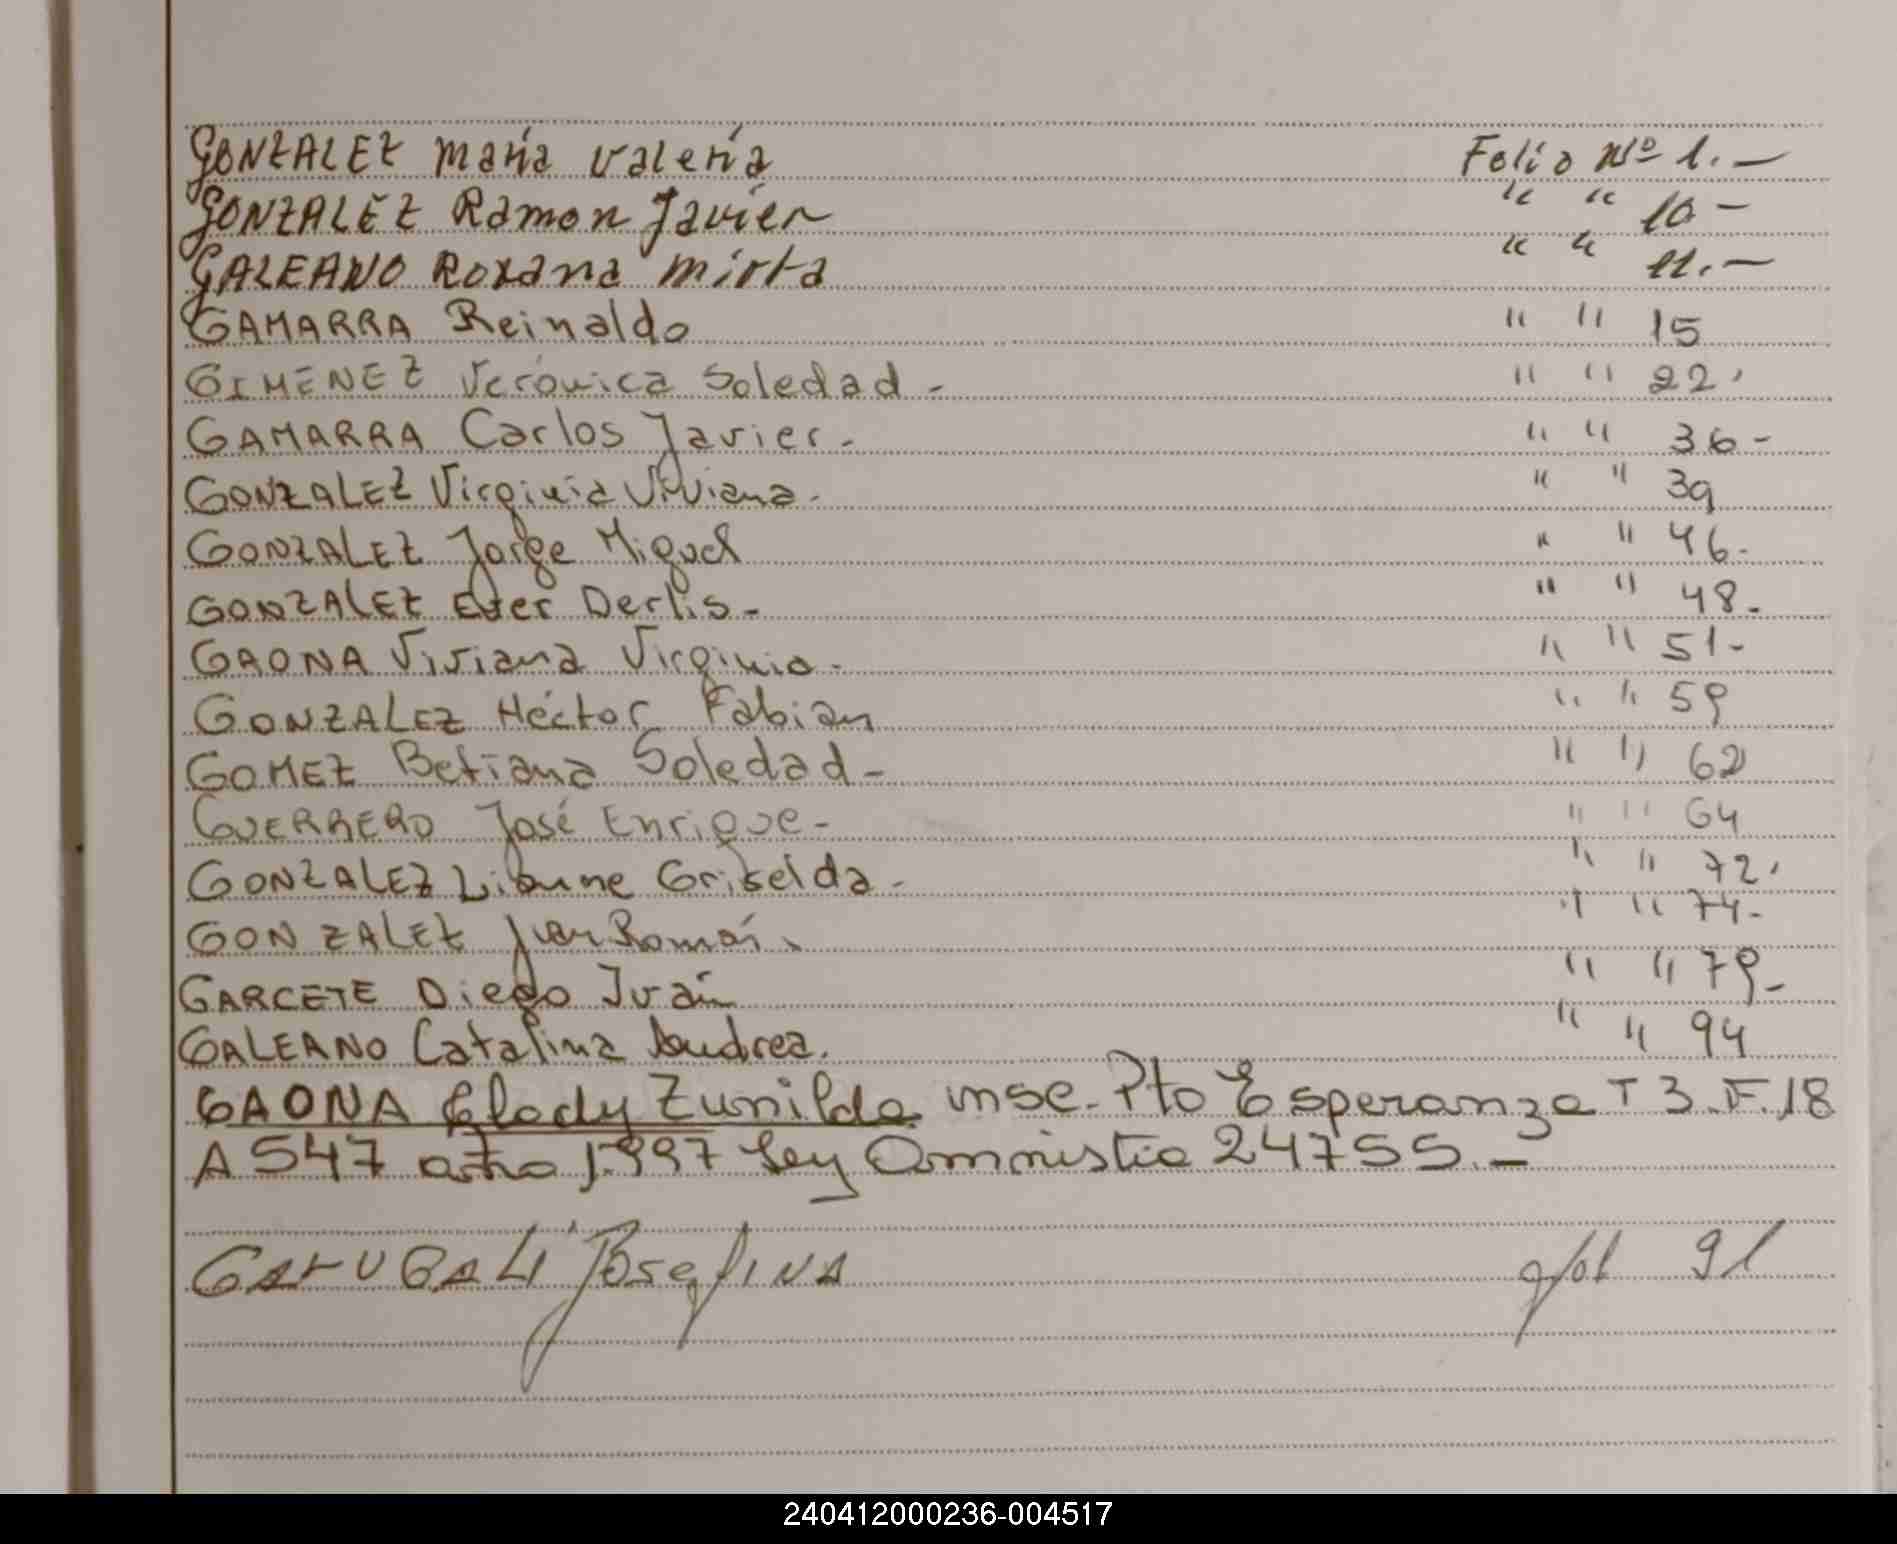 GONZALEZ Maria Valeria Folio Nº 1.-
GONZALEZ Ramon Javier " " 10 -
GALEANO Roxana Mirta " " 11.-
GAMARRA Reinaldo " " 15
GIMENEZ Verónica Soledad - " " 22.
GAMARRA Carlos Javier - " " 36 -
GONZALEZ Virginia Viviana - " " 39
GONZALEZ Jorge Miguel " " 46 -
GONZALEZ Ever Derlis - " " 48 -
GAONA Viviana Virginia - " " 51 -
GONZALEZ Héctor Fabian " " 59
GOMEZ Betiana Soledad - " " 62
GUERRERO José Enrique - " " 64
GONZALEZ Griselda - " " 72.
GONZALEZ Juan Román " " 74 -
GARCETE Diego Iván " " 79 -
GALEANO Catalina Andrea. " " 94
GAONA Glady Zunilda insc. Pto Esperanza T 3. F. 18
A 547 año 1.997 Ley Amnistia 24755. -
Josefina 91
240412000236-004517